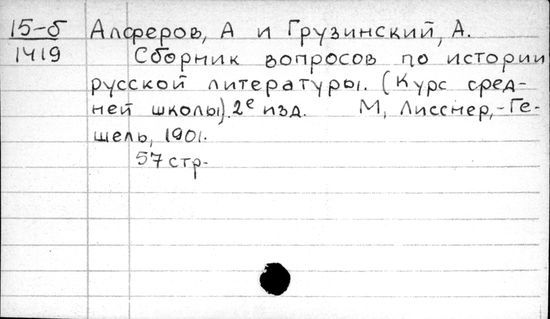 15-б Алферов, А и Грузинский, А.
1419 Сборник вопросов по истории
русской литературы. (Курс сред-
ней школы). 2е изд. М, Лисснер,-Ге-
шель, 1901.
57 стр-